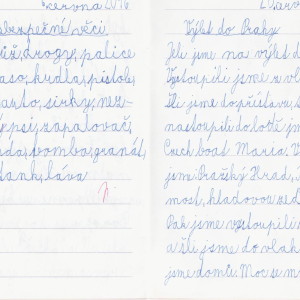 června 2016
bezpečné věci
drogy, palice
kudla, pistole
auto, sirky,
psi, zapalovač,
bomba, granát,
tank, láva
Výlet do Prahy
Jeli jsme na výlet d
Vystoupili jsme z vl
šli jsme do přístavu,
nastoupili do lodě jm
Czech boat Maria. V
jsme Pražský Hrad,
most, hladovou zed
Pak jsme vystoupili
a šli jsme do vlak
jsme domů. Moc se m